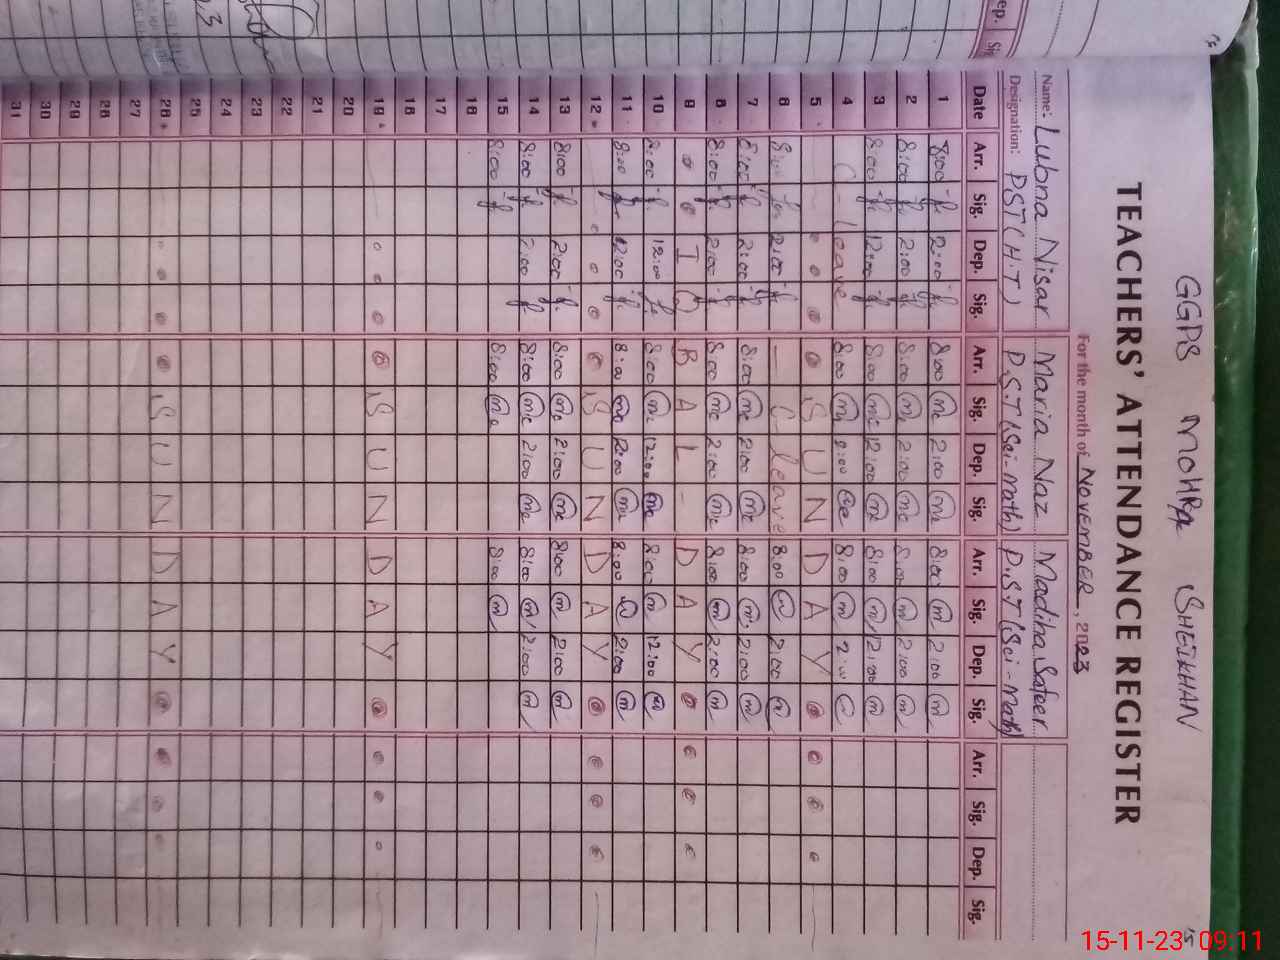 GGPS MOHRA SHEIKHAN
TEACHERS' ATTENDANCE REGISTER
For the month of NOVEMBER, 2023
Name: Lubna Nisar Maria Naz Madiha Safeer
Designation: PST (H.T) P.S.T (Sci-math) P.S.T (Sci-Math)
Date Arr. Sig. Dep. Sig. Arr. Sig. Dep. Sig. Arr. Sig. Dep. Sig. Arr. Sig. Dep. Sig.
1 8:00 2:00 8:00 2:00 8:00 2:00
2 8:00 2:00 8:00 2:00 8:00 2:00
3 8:00 12:00 8:00 12:00 8:00 12:00
4 C-leave 8:00 2:00 8:00 2:00
5 SUNDAY
6 8:00 2:00 C-leave 8:00 2:00
7 8:00 2:00 8:00 2:00 8:00 2:00
8 8:00 2:00 8:00 2:00 8:00 2:00
9 IQBAL-DAY
10 8:00 12:00 8:00 12:00 8:00 12:00
11 8:00 2:00 8:00 2:00
12 SUNDAY
13 8:00 2:00 8:00 2:00 8:00 2:00
14 8:00 2:00 8:00 2:00 8:00 2:00
15 8:00 8:00 8:00
16
17
18
19 SUNDAY
20
21
22
23
24
25
26 SUNDAY
27
28
29
30
31
15-11-23 09:11